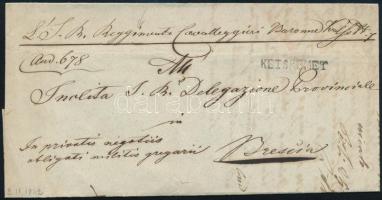 L'I. R. Reggimento Cavalleggieri Barone
And. 678
All
KETSKEMET
Inclita I. R. Delegazione Provinciale
in
In privatis negotiis
obligati militis gregarii
Brescia